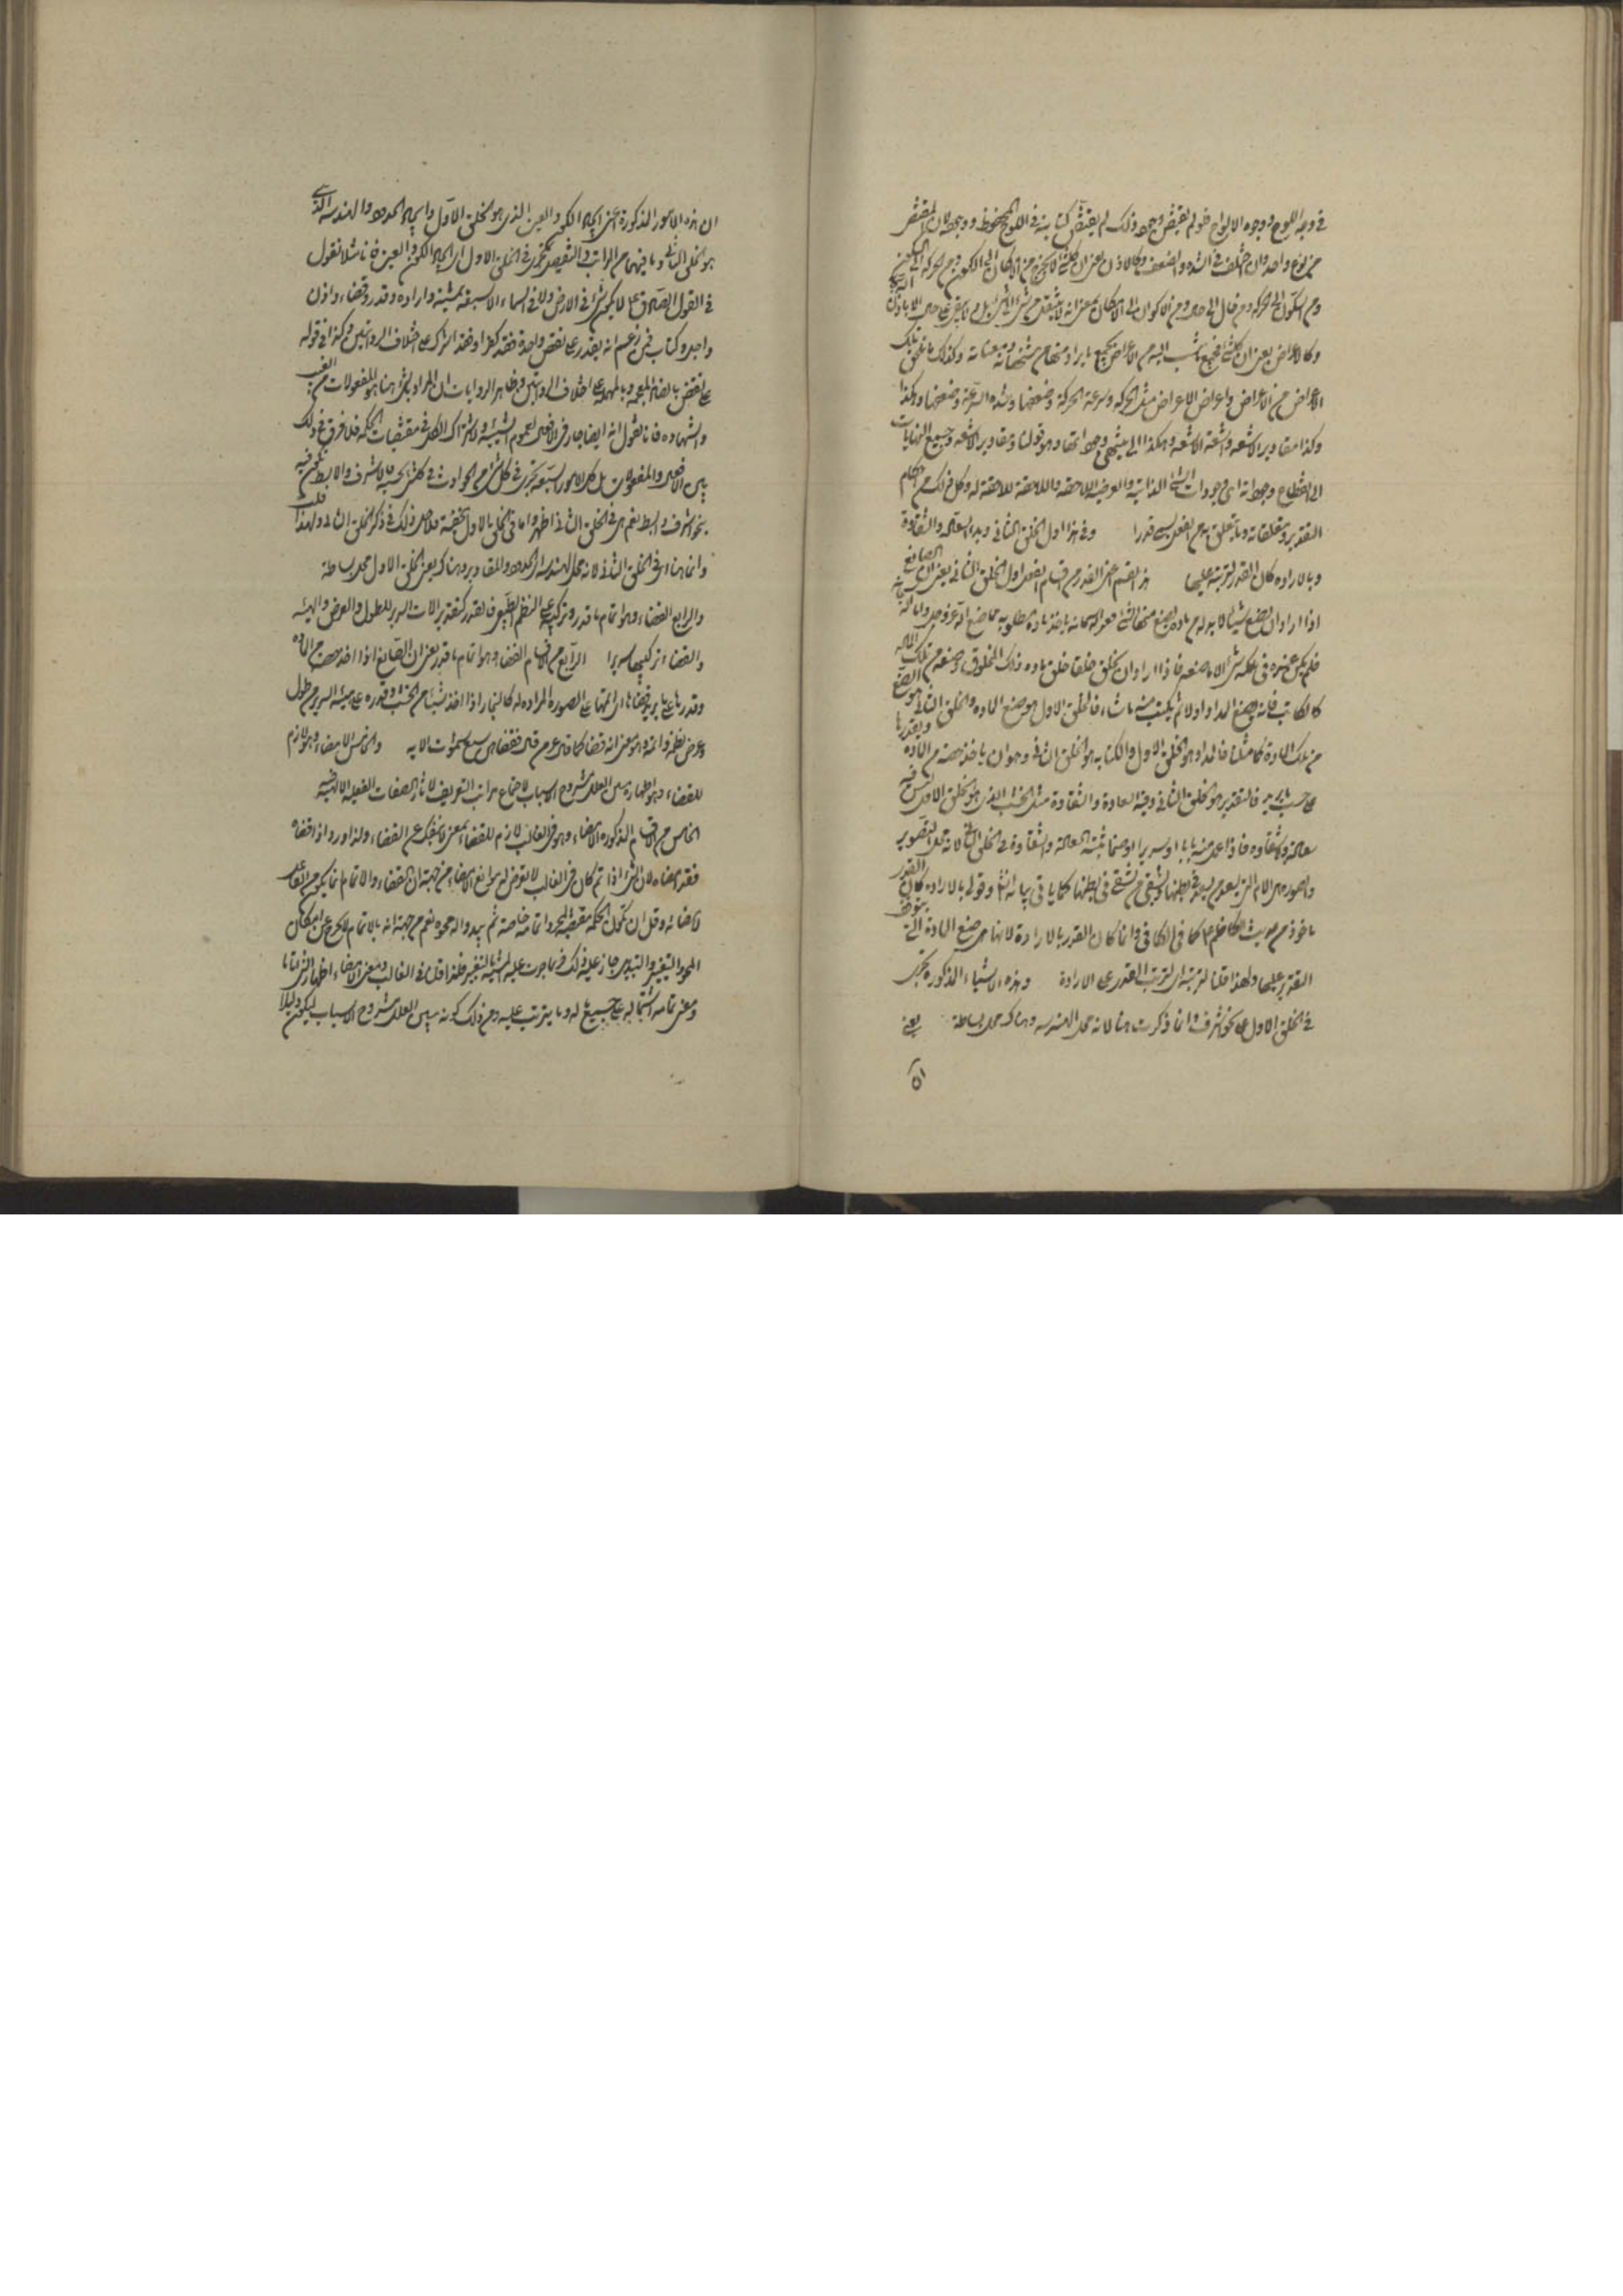 في وجه اللوح ووجوه الالواح فلو لم يقتض وجود ذلك لم يقتض كتابته في اللوح المحفوظ ووجوده لان المقتضى
من نوع واحد وان اختلف في الشدة والضعف وكالاذن يعني ان كل شيء لا يخرج من الامكان الى الكون ومن الحركة الى السكون
ومن السكون الى الحركة ومن حال الى حال ومن الاكوان الى الامكان بمعنى انه لا ينتقل من شيء الى شيء بل ولا يبقى على حاله الا باذن
وكالاعراض يعني ان كل شيء فجميع ما ينسب اليه من الاعراض بجميع ما يراد منها من مشخصاته ومعيناته وكذلك ما يلحق تلك
الاعراض من الاعراض واعراض الاعراض مثل الحركة وسرعة الحركة وضعفها وشدة السرعة وضعفها وهكذا
وكذا مقادير الاشعة واشعة الاشعة وهكذا الى منتهى وجوداتها وهو قولنا ومقادير الاشعة وجميع النهايات
الى انقطاع وجوداته اي وجودات الشيء الذاتية والعرضية اللاحقة واللاحقة للاحقة له وكل ذلك من احكام
التقدير ومتعلقاته وما يتعلق به من الفعل يسمى قدرا وفي هذا اول الخلق الثاني وبدء السعادة والشقاوة
وبالارادة كان القدر لترتبه عليها هذا القسم اعني القدر من اقسام الفعل اول الخلق الثاني يعني ان الصانع
اذا اراد ان يصنع شيئا لا بد له من مادة يصنع منها الشيء
فلم يكن عنده في ملكه شيء الا ما صنعه فاذا اراد ان يخلق خلقا خلق مادة ذلك المخلوق وصنعه من تلك المادة
كالكاتب فانه يصنع المداد اولا ثم يكتب منه ما شاء فالخلق الاول هو صنع المادة والخلق الثاني هو الصنع
من تلك المادة كما مثلنا فالمداد هو الخلق الاول والكتابة هو الخلق الثاني وهو ان ياخذ حصة من المادة ويقدرها
على حسب ما يريد فالتقدير هو الخلق الثاني وفيه السعادة والشقاوة مثل الخشب الذي هو الخلق الاول ليس فيه
سعادة ولا شقاوة فاذا عمل منه بابا او سريرا او صنما تثبت السعادة والشقاوة في الخلق الثاني لانه محل التصوير
والصورة هي الام التي يسعد من يسعد في بطنها ويشقى من يشقى في بطنها كما ياتي بيانه ان شاء وقولي بالارادة كان القدر
ماخوذ من حديث الكاظم ع كما في الكافي وانما كان القدر بالارادة لانها هي صنع المادة التي يتوقف
التقدير عليها ولهذا قلنا لترتبه اي لترتب القدر على الارادة وهذه الاشياء المذكورة تجري
في الخلق الاول على نحو اشرف وانما ذكرت هنا لانه محل الهندسة وهناك محل بساطة يعني
ان
ان هذه الامور المذكورة اعني ايجاد الكون والعين الذي هو الخلق الاول وايجاد الحدود والهندسة الذي
هو الخلق الثاني وما فيهما من المراتب في التفصيل تجري في الخلق الاول اي ايجاد الكون والعين فانا مثلا نقول
في القول الصادق ع لا يكون شيء في الارض ولا في السماء الا بسبعة بمشية وارادة وقدر وقضاء واذن
واجل وكتاب فمن زعم انه يقدر على نقص واحدة فقد كفر او فقد اشرك على اختلاف الروايتين وكذا في قوله
على نقض بالضاد المعجمة وبالمهملة على اختلاف الروايتين وظاهر الروايات ان المراد بالشيء هنا هو المفعولات من الغيب
والشهادة فانا نقول انه ايضا جار في الافعال لعموم الشيئية ولاشتراك الكل في مقتضيات الحكمة فلا فرق في ذلك
بين الافعال والمفعولات بل كل الامور السبعة تجري في كل شيء من الحوادث في كل شيء بحسبه فالاشرف والابسط تكون فيه
بنحو اشرف وابسط نعم هي في الخلق الثاني اظهر واما في الخلق الاول فخفية فلاجل ذلك في ذكر الخلق الثاني ولهذا قلت
وانما هنا اي في الخلق الثاني لانه محل الهندسة اي الحدود والمقادير وهناك يعني الخلق الاول محل بساطة
والرابع القضاء وهو اتمام ما قدر وتركيبه على النظم الطبيعي فالقدر كتقدير الات السرير للطول والعرض والهيئة
والقضاء تركيبها سريرا الرابع من الاقسام القضاء وهو اتمام ما قدر يعني ان الصانع اذا اخذ حصة من المادة
وقدرها على ما يريد قضاها اي اتمها على الصورة المرادة له كالنجار اذا اخذ شيئا من الخشب وقدره على هيئة السرير من طول
وعرض نظمه واتمه وهو معنى انه قضاه كما قال عز من قائل فقضاهن سبع سموات الاية والخامس الامضاء وهو لازم
للقضاء وهو اظهاره مبين العلل مشروح الاسباب لاجتماع مراتب التعريف لاثار الصفات الفعلية الالهية فيه
الخامس من الاقسام المذكورة الامضاء وهو في الغالب لازم للقضاء بمعنى لا ينفك عن القضاء ولذا ورد واذا قضاه
فقد امضاه لان الشيء اذا تم كان في الغالب لا تعرض له موانع الامضاء من جهة ان القضاء والاتمام انما يكون من الفاعل
لامضائه وقل ان تكون الحكمة مقتضية لمجرد اتمامه خاصة ثم يبدو له محوه نعم من جهة انه بالاتمام لا يخرج عن امكان
المحو والتغيير والتبديل جاز عليه ذلك فربما جرت عليه المشية بالتغيير فلذا قلنا في الغالب ومعنى الامضاء اظهار الشيء تاما
ومعنى تمامه اشتماله على جميع ما له وما يترتب عليه ومن ذلك كونه مبين العلل مشروح الاسباب ليكون دليلا